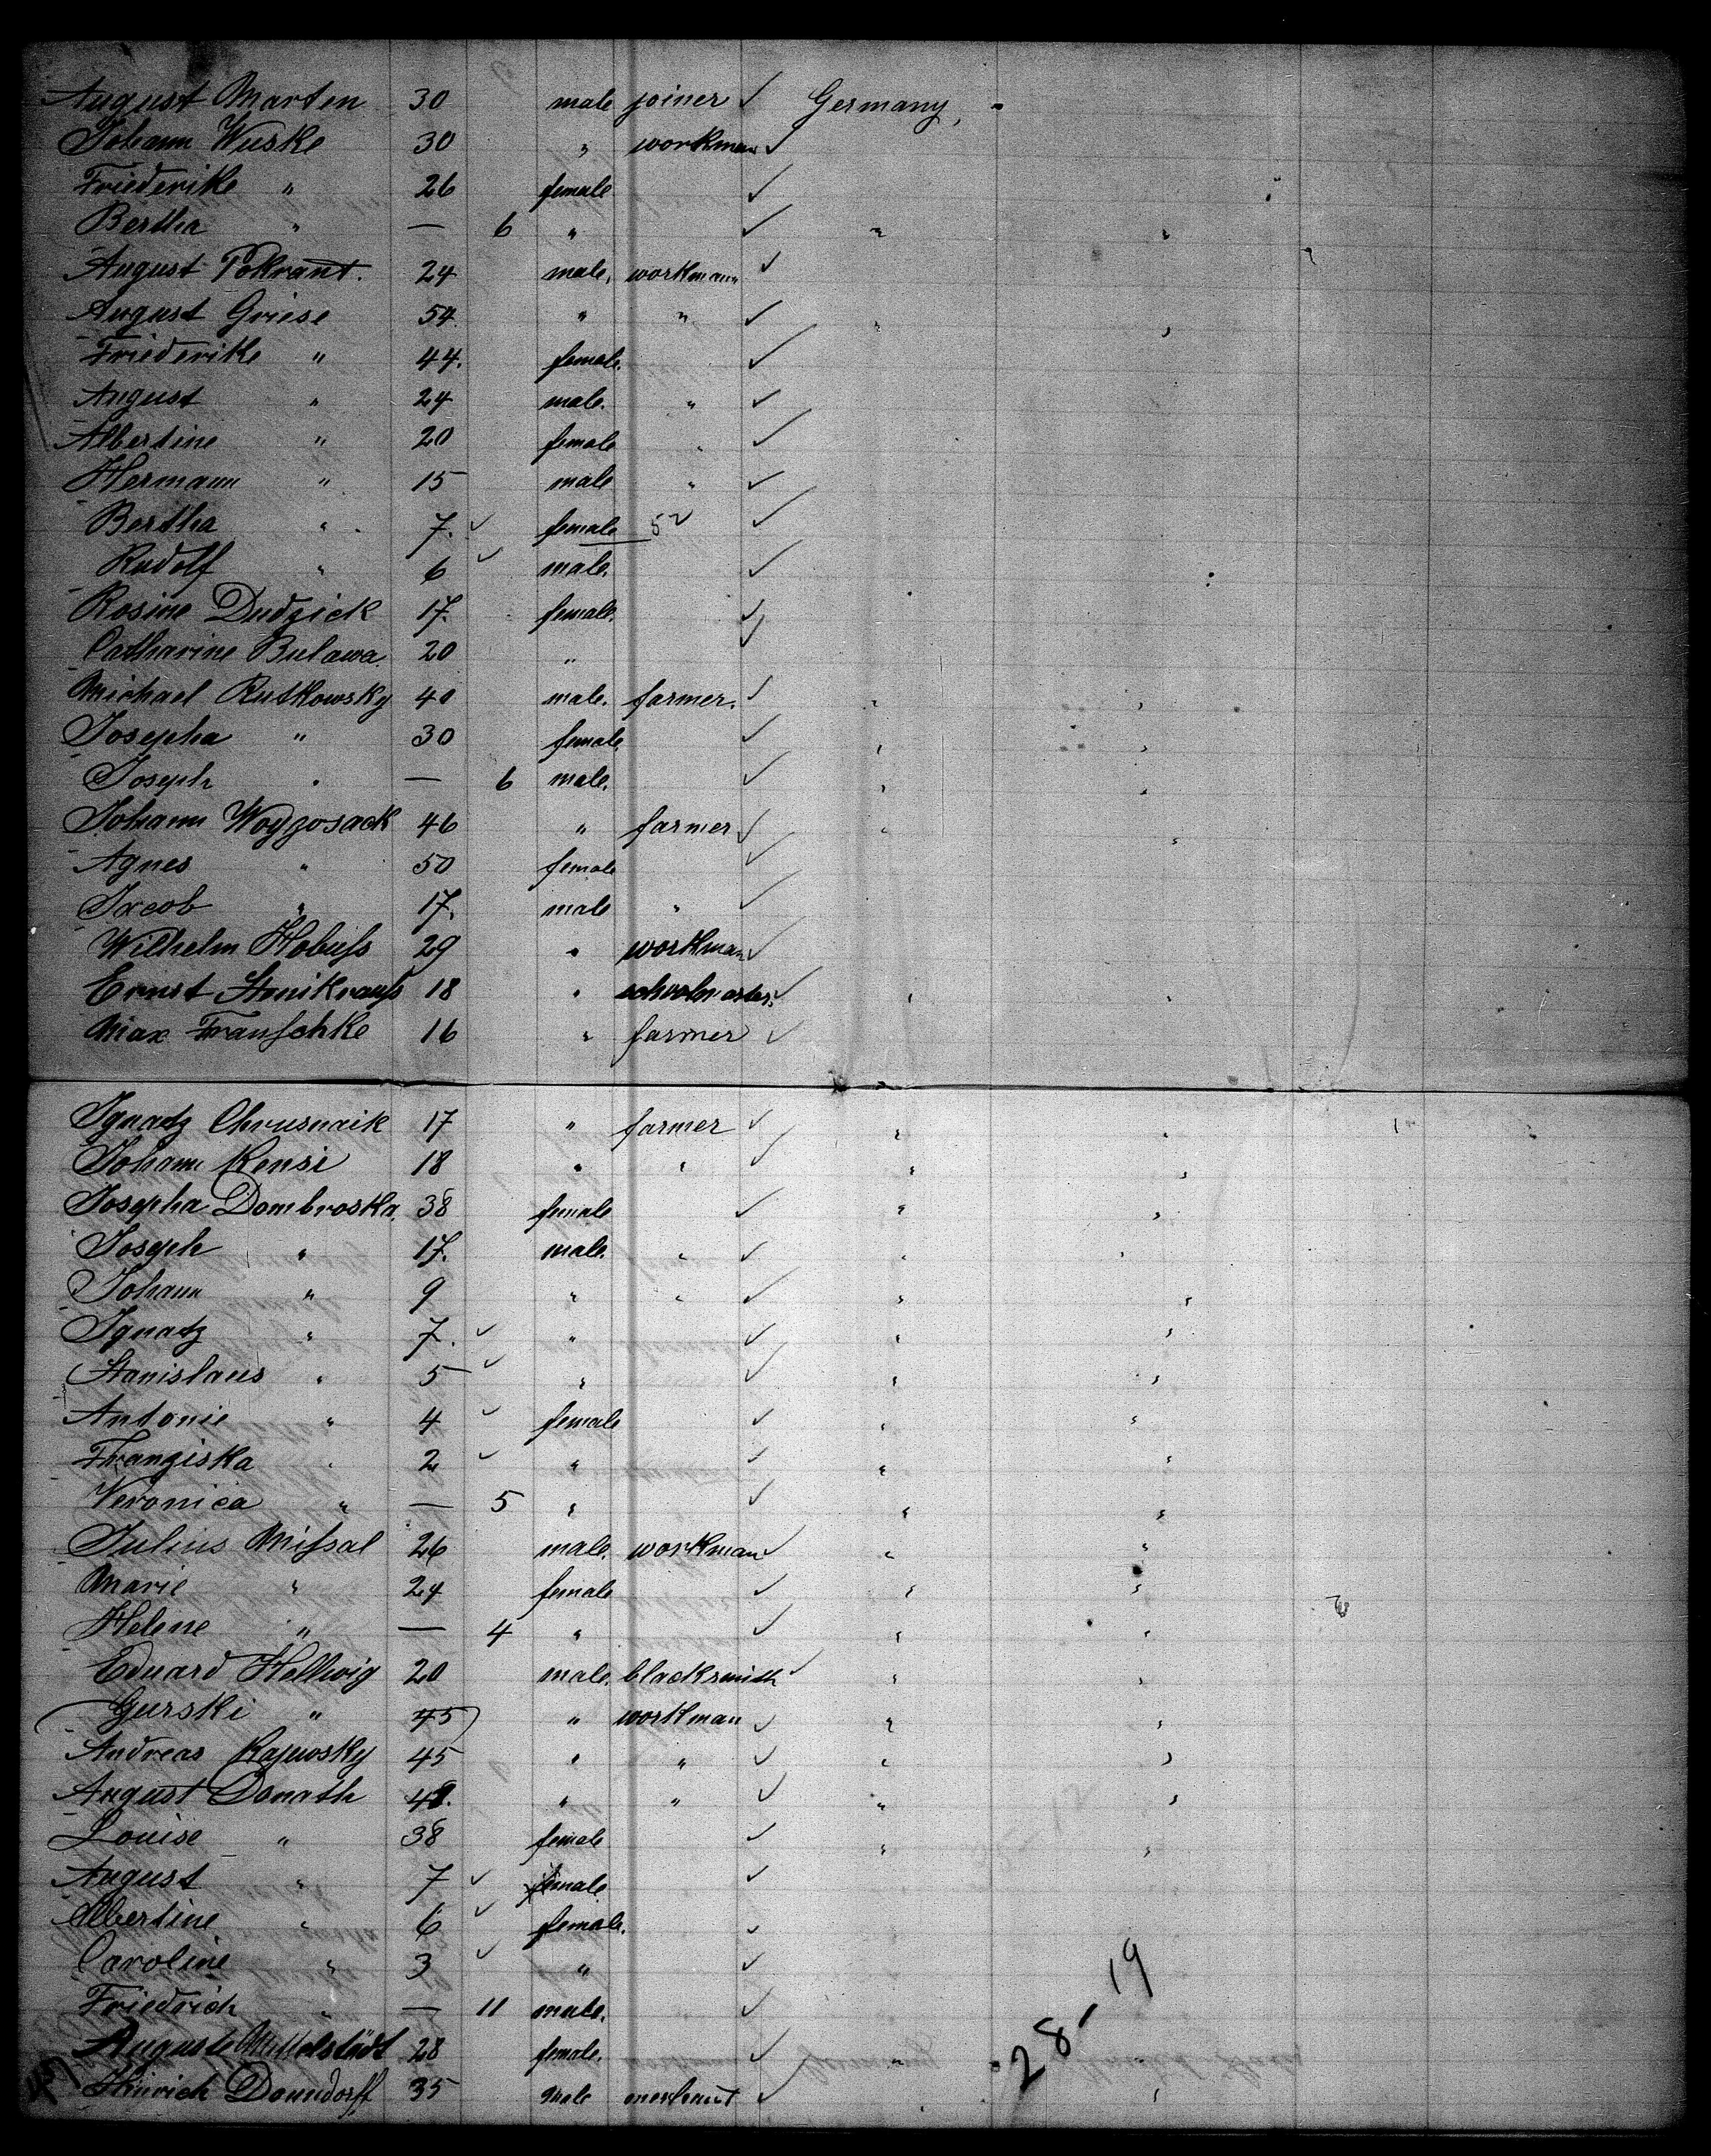 August Marten 30 male joiner ✓ Germany,
Johann Wuske 30 " workman ✓
Friederike " 26 female ✓
Bertha " — 6 " ✓ " "
August Pokrant. 24 male, workmann ✓
August Griese 54 " " ✓ " "
Friederike " 44. female. ✓
August " 24 male. " ✓
Albertine " 20 female " ✓
Hermann " 15 male " ✓
Bertha " 7. ✓ female 52 ✓
Rudolf " 6 ✓ male. ✓
Rosine Dudzick 17. female. ✓
Catharine Bulawa 20 " ✓
Michael Rutkowsky 40 male. farmer. ✓ " "
Josepha " 30 female ✓ " "
Joseph " — 6 male. ✓ " "
Johann Woyzosack 46 " farmer ✓ " "
Agnes " 50 female ✓
Jacob " 17. male " ✓
Wilhelm Hobuſs 29 " workman ✓
Ernst Stenikrauſs 18 " schoolmaster. ✓ " "
Max Franſchke 16 " farmer ✓
Ignatz Chrusnaik 17 " farmer ✓ " "
Johann Kensi 18 " " ✓ " "
Josepha Dombroska 38 female ✓ " "
Joseph " 17. male. " ✓ " "
Johann " 9 " " ✓ " "
Ignatz " 7. ✓ " ✓ " "
Stanislaus " 5 ✓ " ✓ " "
Antonie " 4 ✓ female ✓ " "
Franziska " 2 ✓ " ✓ " "
Veronica " — 5 " ✓ " "
Julius Miſsal 26 male. workman ✓ " "
Marie " 24 female ✓ " "
Helene " — 4 " ✓ " "
Eduard Hellwig 20 male. blacksmith ✓ " "
Gurski " 45 " workman ✓ " "
Andreas Kajewsky 45 " " ✓ " "
August Donath 48. " " ✓ " "
Louise " 38 female ✓ " "
August " 7 ✓ male ✓
Albertine " 6 ✓ female. ✓
Caroline " 3 ✓ " ✓
Friedrich " — 11 male. ✓
Auguste Mittelstädt 28 female. ✓
Hinrich Donndorff 35 male merchant ✓ "
28-19